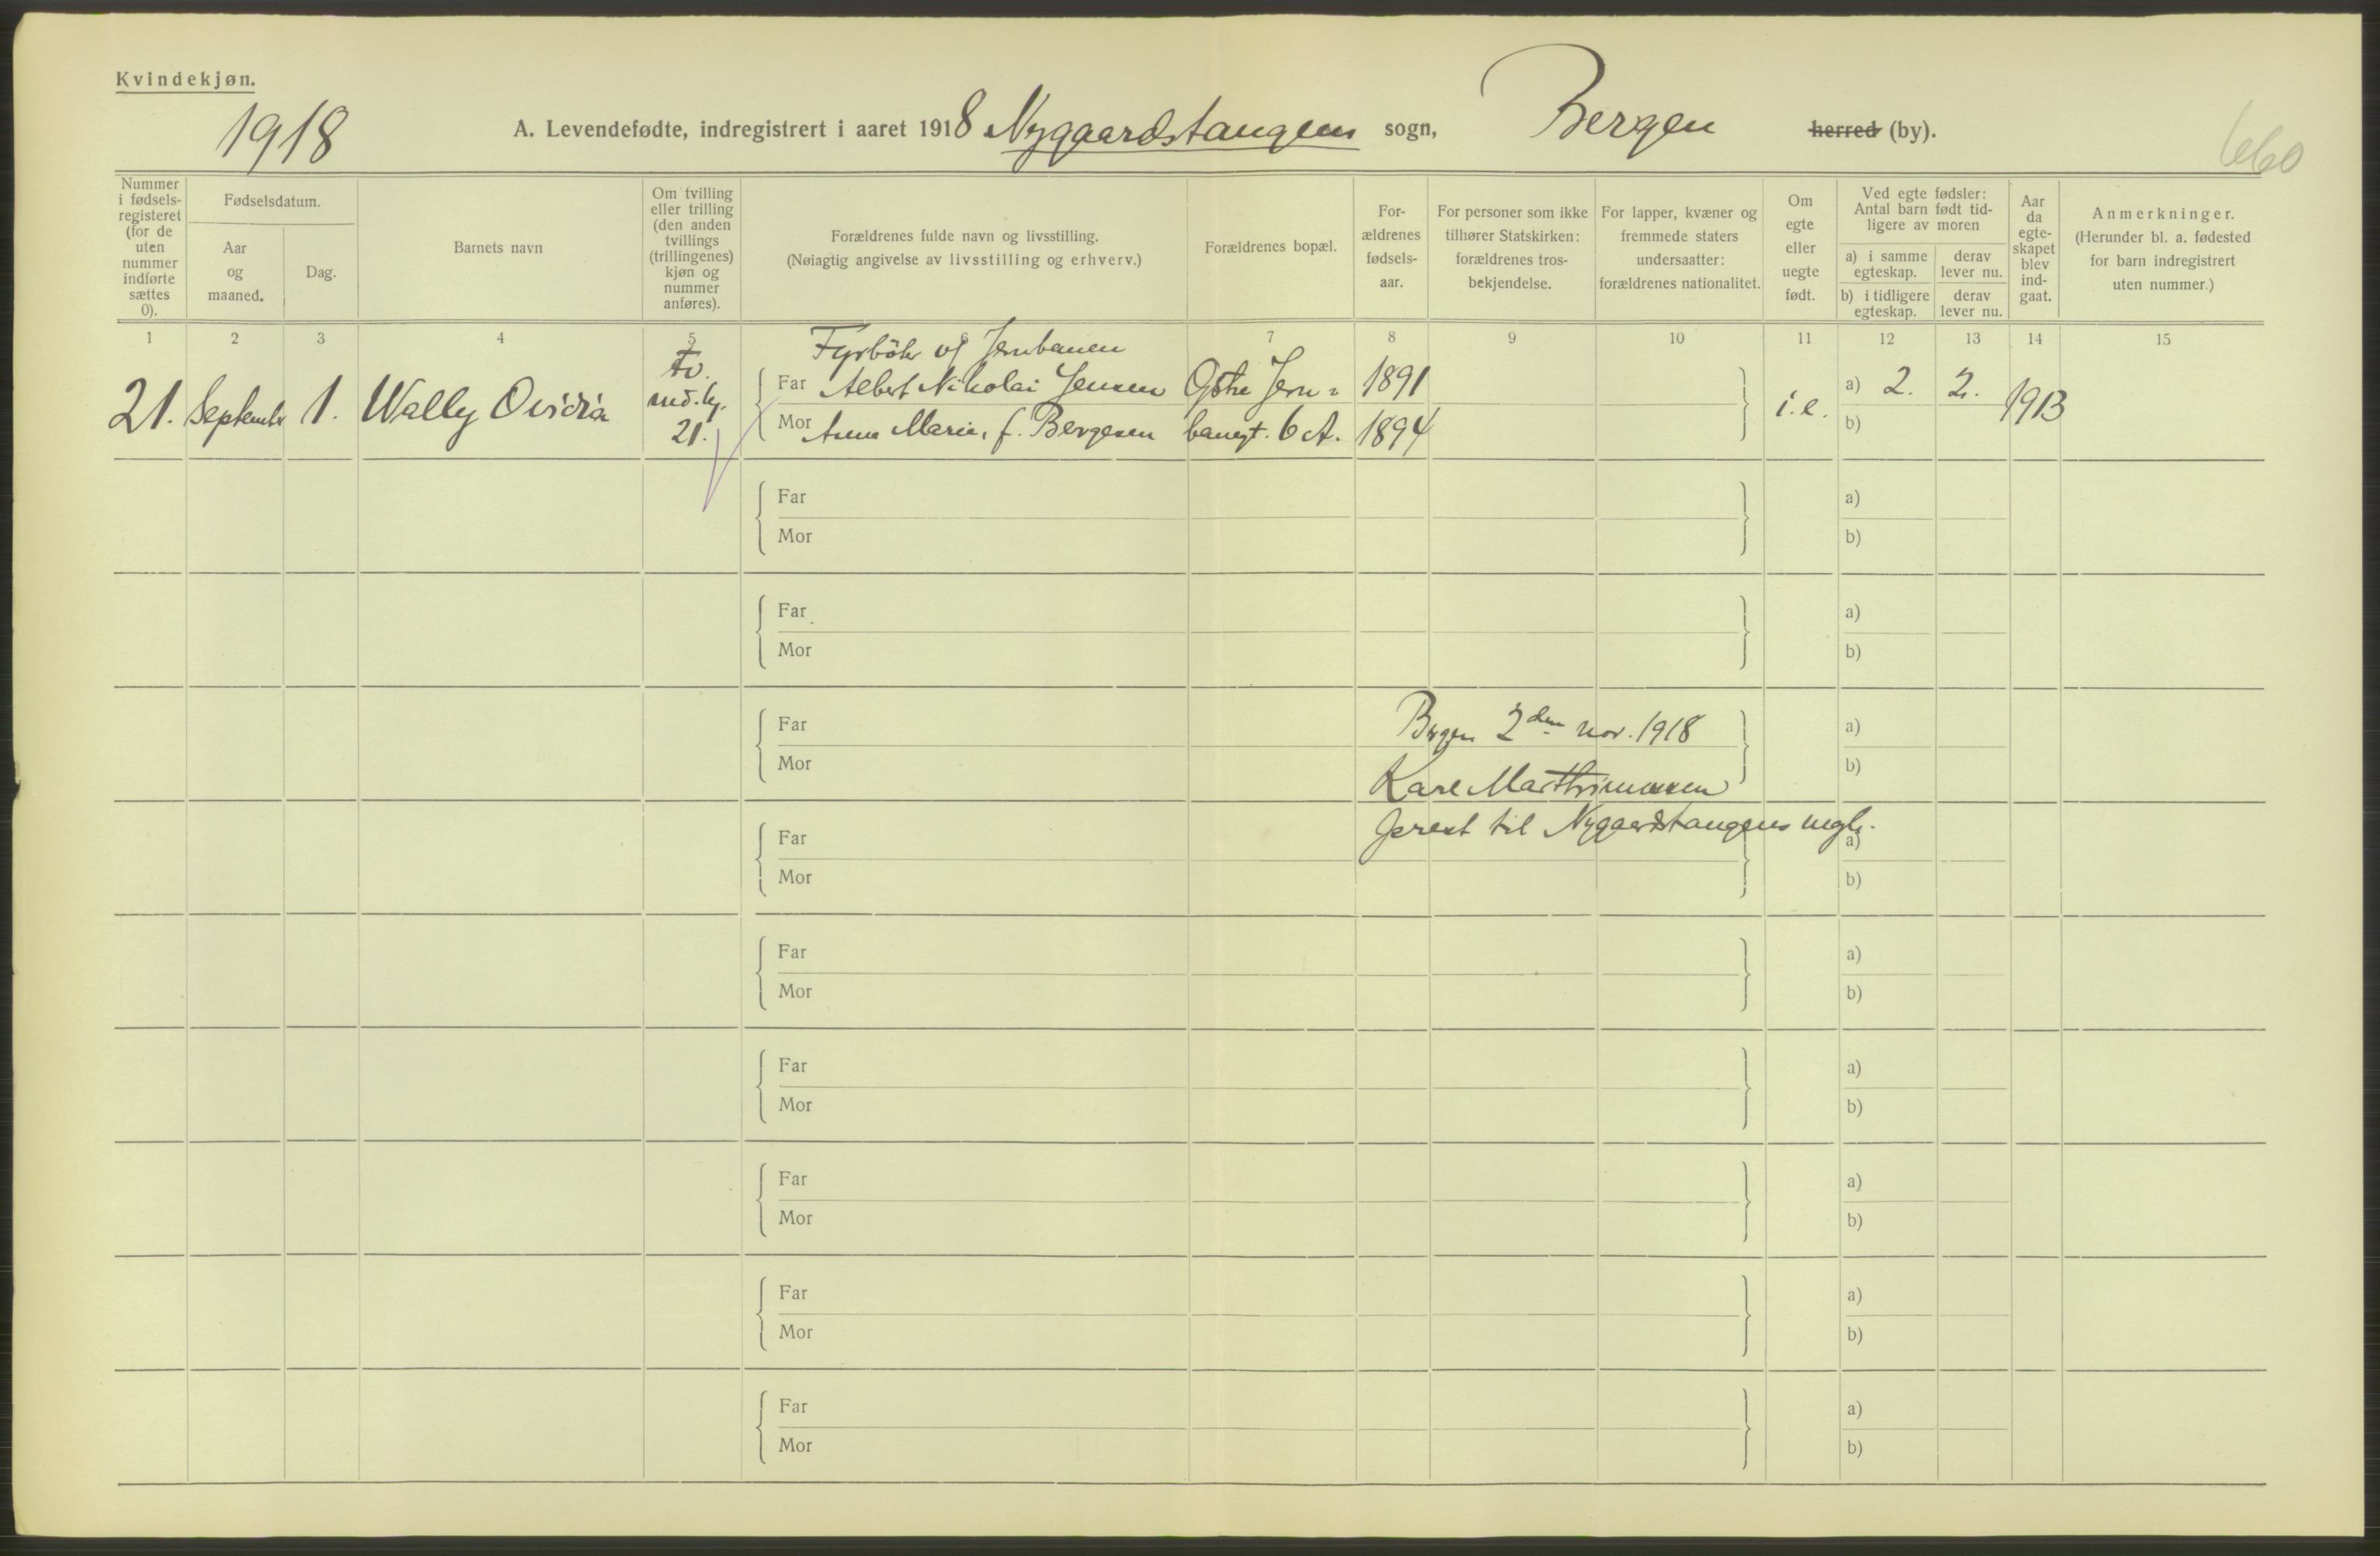 Kvindekjøn.
1918
A. Levendefødte, indregistrert i aaret 1918 Nygaardstangens sogn, Bergen herred (by).
660
Nummer i fødsels-registeret (for de uten nummer indførte sættes 0).
Fødselsdatum.
Aar og maaned.
Dag.
Barnets navn
Om tvilling eller trilling (den anden tvillings (trillingenes) kjøn og nummer anføres).
Forældrenes fulde navn og livsstilling.
(Nøiagtig angivelse av livsstilling og erhverv.)
Forældrenes bopæl.
For-ældrenes fødsels-aar.
For personer som ikke tilhører Statskirken: forældrenes tros-bekjendelse.
For lapper, kvæner og fremmede staters undersaatter: forældrenes nationalitet.
Om egte eller uegte født.
Ved egte fødsler: Antal barn født tid-ligere av moren
a) i samme egteskap.
derav lever nu.
b) i tidligere egteskap.
derav lever nu.
Aar da egte-skapet blev ind-gaat.
Anmerkninger.
(Herunder bl. a. fødested for barn indregistrert uten nummer.)
1 2 3 4 5 7 8 9 10 11 12 13 14 15
Fyrbøter v/ Jernbanen
21. September 1. Wally Ovidia
Tv. md. kj. 21.
Far Albert Nikolai Jensen Østre Jern= 1891
Mor Anna Marie, f. Bergesen banegt. 6 A. 1894
i.e.
a) 2. 2. 1913
b)
Far a)
Mor b)
Far a)
Mor b)
Far Bergen 2den nov. 1918 a)
Mor b)
Far til Nygaardstangens mgh. a)
Mor b)
Far a)
Mor b)
Far a)
Mor b)
Far a)
Mor b)
Far a)
Mor b)
Far a)
Mor b)